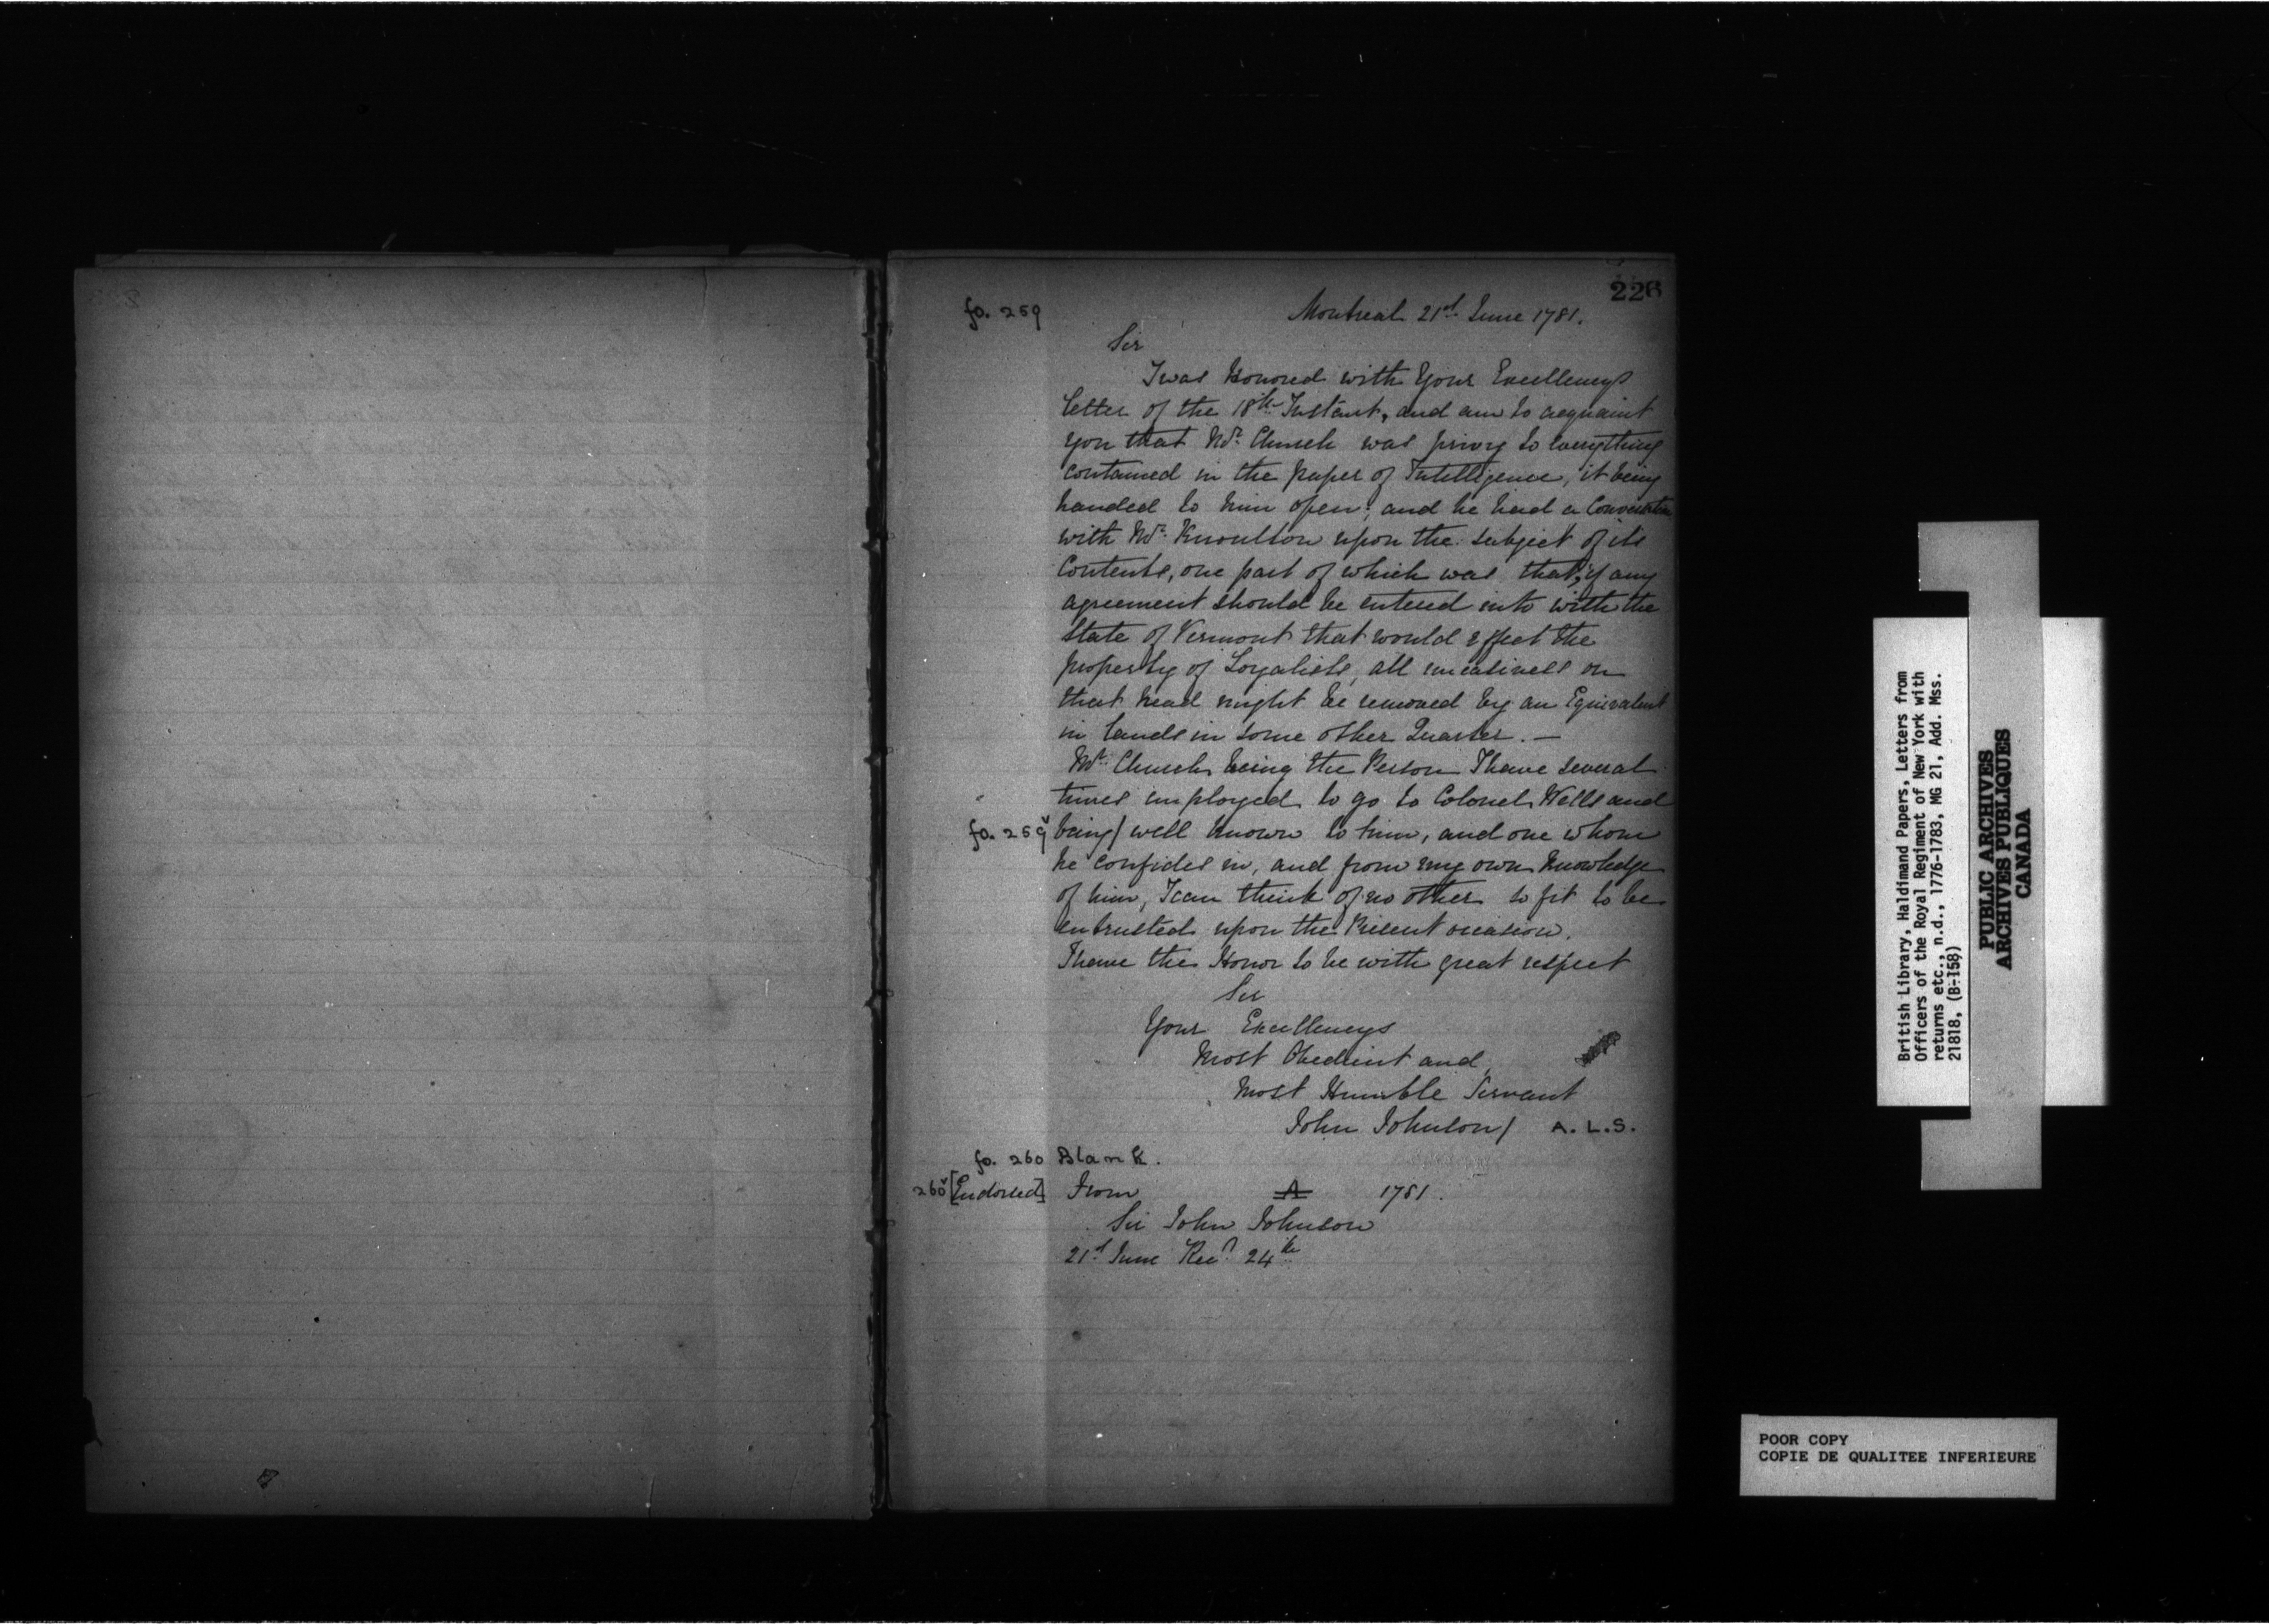 226
fo. 259
Montreal 21st June 1781.
Sir
I was Honored with Your Excellencys
letter of the 18th Instant, and am to acquaint
you that Mr. Church was privy to everything
contained in the paper of Intelligence, it being
handed to him open; and he had a Conversation
with Mr. Knoulton upon the subject of its
Contents, one part of which was that, if any
agreement should be entered into with the
State of Vermont that would effect the
property of Loyalists, all uneasiness on
that head might be removed by an Equivalent
in lands in some other Quarter. —
Mr. Church being the Person I have several
times employed to go to Colonel Wells and
fo. 259v being/ well known to him, and one whom
he confides in, and from my own knowledge
of him, I can think of no other so fit to be
entrusted upon the Present occasion.
I have the Honor to be with great respect
Sir
Your Excellencys
Most Obedient and
Most Humble Servant
John Johnson/ A. L. S.
fo. 260 Blank.
260v [Endorsed] From A 1781.
Sir John Johnson
21st June Recd 24th
British Library, Haldimand Papers, Letters from
Officers of the Royal Regiment of New York with
returns etc., n.d., 1776-1783, MG 21, Add. Mss.
21818, (B-158)
PUBLIC ARCHIVES
ARCHIVES PUBLIQUES
CANADA
POOR COPY
COPIE DE QUALITEE INFERIEURE